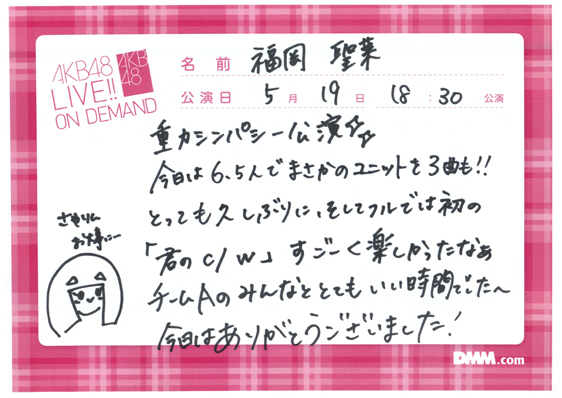 AKB48
LIVE!!
ON DEMAND
AKB
48
名前 福岡 聖菜
公演日 5月19日 18:30 公演
重力シンパシー公演☆☆
今日は6、5人でまさかのユニットを3曲も!!
とっても久しぶりに、そしてフルでは初の
「君のc/w」すごーく楽しかったなぁ
チームAのみんなととてもいい時間でした〜
今日はありがとうございました!
お大事に…
DMM.com